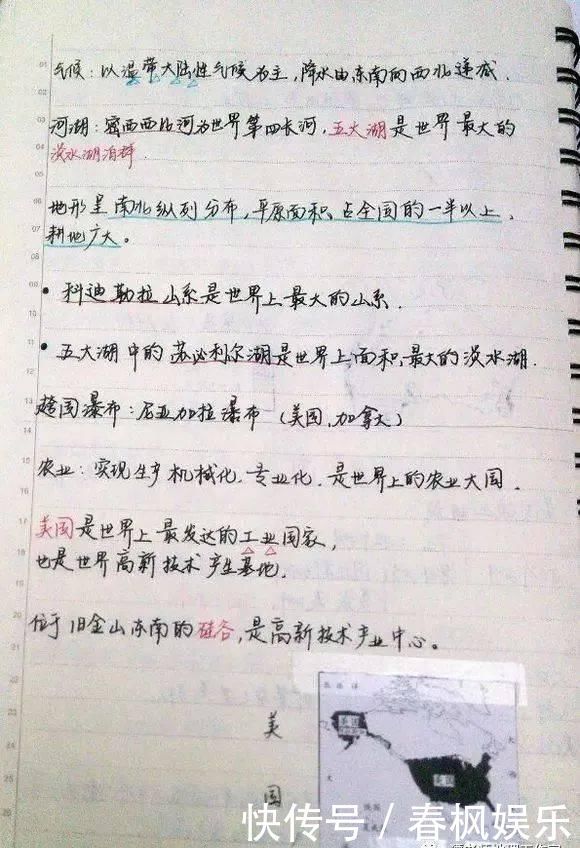 气候：以温带大陆性气候为主，降水由东南向西北递减．
河湖：密西西比河为世界第四长河，五大湖是世界最大的
淡水湖泊群．
地形呈南北纵列分布，平原面积占全国的一半以上，
耕地广大。
• 科迪勒拉山系是世界上最大的山系．
• 五大湖中的苏必利尔湖是世界上面积最大的淡水湖．
跨国瀑布：尼亚加拉瀑布（美国，加拿大）
农业：实现生产机械化，专业化，是世界上的农业大国．
美国是世界上最发达的工业国家，
也是世界高新技术产生基地．
位于旧金山东南的硅谷，是高新技术产业中心。
美
国
快传号／春枫娱乐